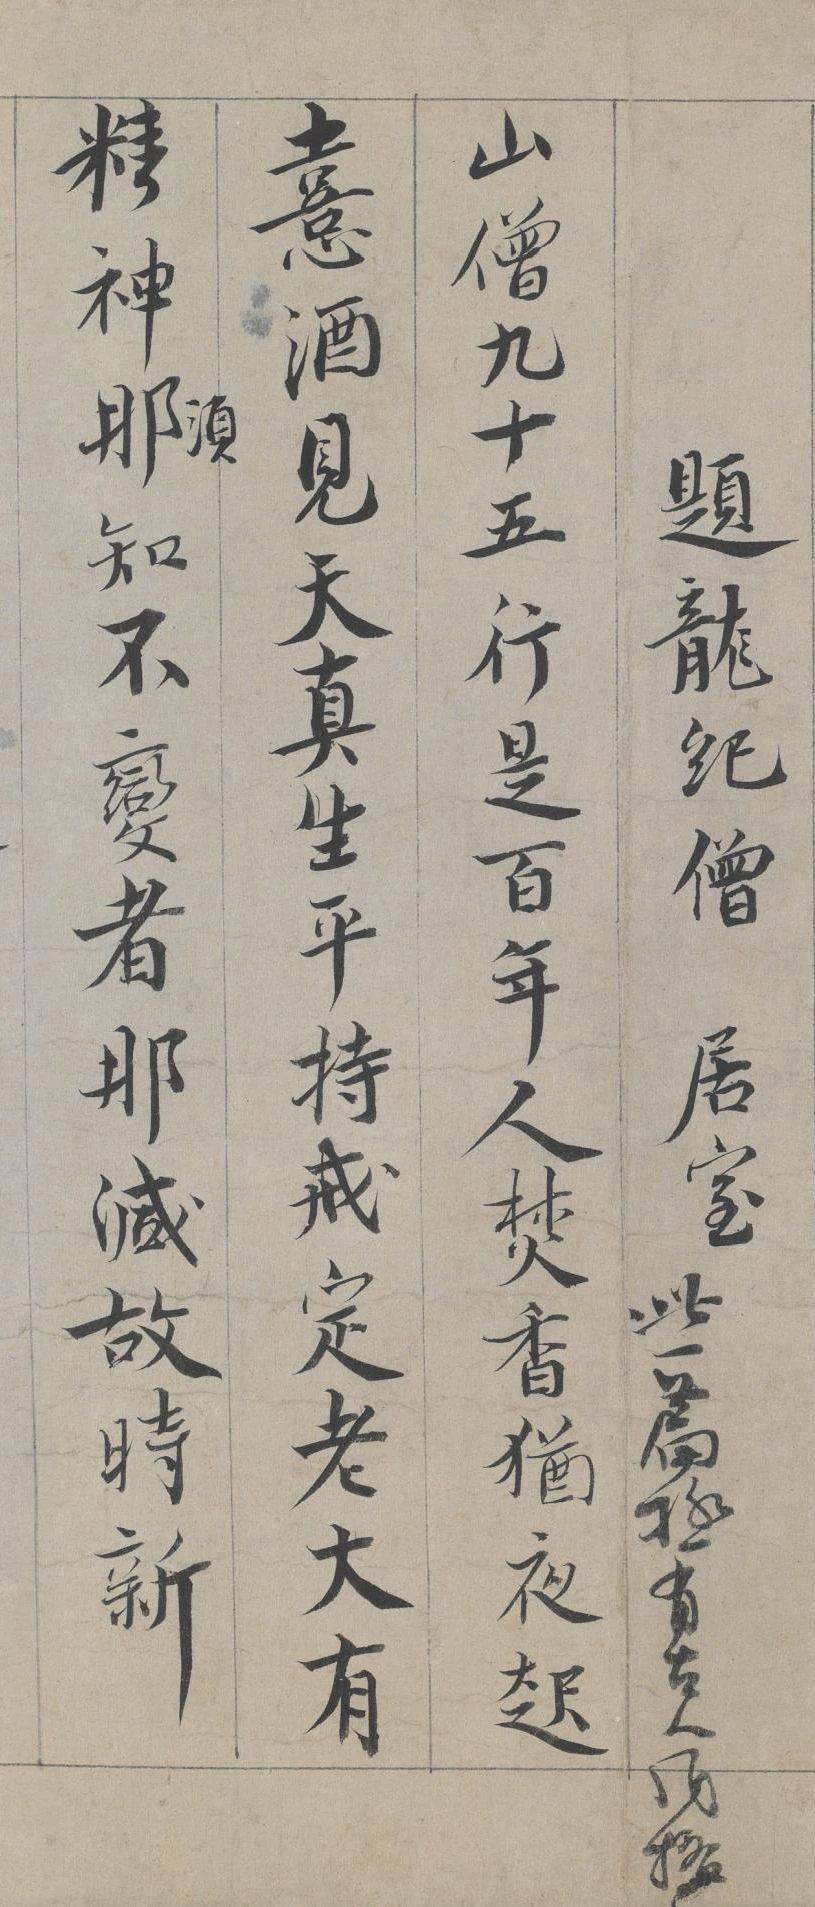 題龍紀僧 居室 此篇極有古人
山僧九十五行是百年人焚香猶夜起
憙酒見天真生平持戒定老大有
精神那須知不變者那減故時新